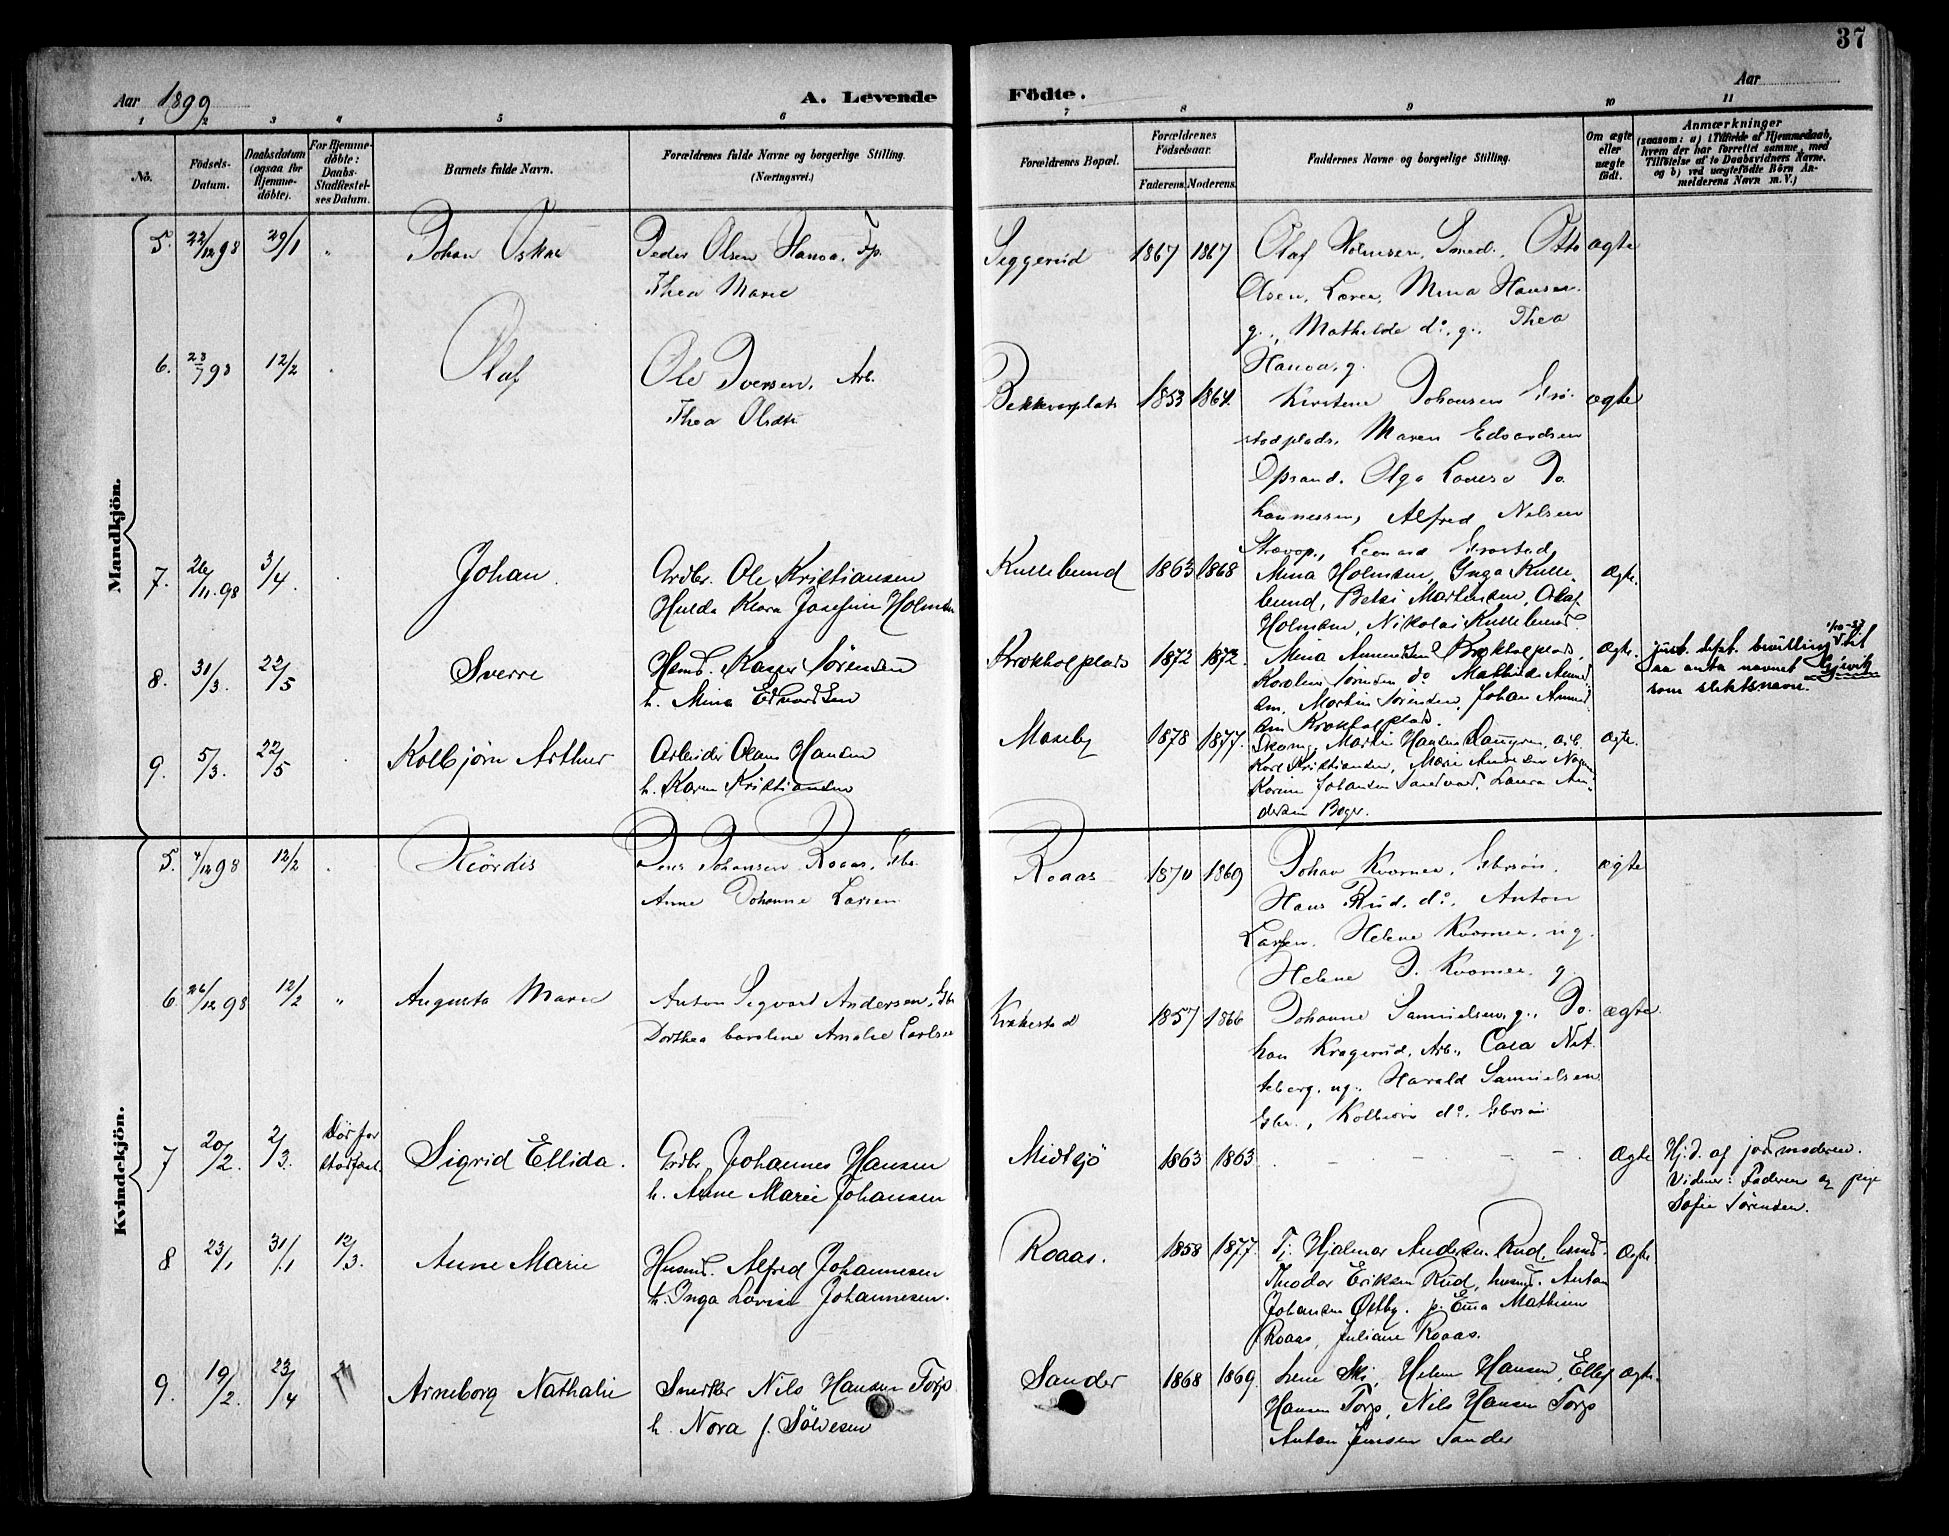 37
Aar 1899
A. Levende
Födte.
Aar
1 2 3 4 5 6 7 8 9 10 11
No.
Födsels-
Datum.
Daabsdatum
(ogsaa for
Hjemme-
döbte).
For Hjemme-
döbte:
Daabs-
Stadfæstel-
ses Datum.
Barnets fulde Navn.
Forældrenes fulde Navne og borgerlige Stilling.
(Næringsvei.)
Forældrenes Bopæl.
Forældrenes
Födselsaar.
Faderens. Moderens.
Faddernes Navne og borgerlige Stilling.
Om ægte
eller
uægte
födt.
Anmærkninger
(saasom: a) i Tilfælde af Hjemmedaab,
hvem der har forrettet samme, med
Tilföielse af to Daabsvidners Navne.
og b) ved uægtefödte Börn An-
melderens Navn m. V.)
Mandkjön.
5. 22/12 98 29/1 " Johan Oskar
Peder Olsen
Thea Marie
Siggerud 1867 1867
Olaf Holmsen, Smed, Otto
Olsen, Mina Hansen
g., Mathilde do, g., Thea
g.
ægte
6. 12/2 Olaf
Ole Iversen, Arb.
Thea Olsdtr
1853 1864
Johansen
Maren Edvardsen
Opsand, Olga Jo-
hannessen, Alfred Nilsen
ægte
7. 26/11 98 3/4 Johan.
Grdbr. Ole Kristiansen
Hulda Klara Josefine Holmsen
Kullebund 1863 1868
Mina Holmsen, Inga Kulle-
bund, Betsi Martinsen, Olaf
Holmsen, Nikolai Kullebund
ægte.
8. 31/3. 22/5 Sverre
Husmd. Kasper Sørensen
h. Mina Edvardsen
Krokholplads 1872 1872.
Mina Amundsen Krokholplads,
Karoline Sørensen do
Martin Sørensen, Johan
Krokholplads.
ægte.
just. dept. bevilling til
aa anta navnet Gjevik
som slektsnavn.
9. 5/3. 22/5 Kolbjørn Arthur
Arbeider Olaus Hansen
h. Karen Kristiansen
Moseby 1878 1877.
Martin Hansen
Karl Kristiansen, Marie
Johansen Laura An-
dersen
ægte.
Kvindekjön.
5. 4/12 98 12/2 Hiördis
Jens Johansen Roaas,
Anne Johanne Larsen
Roaas 1870 1869
Johan Kværner, Gbrsön,
Hans Rud, do, Anton
Larsen, Helene Kværner, ug.
Helene J. Kværner, g.
ægte
6. 26/12 98 12/2 " Augusta Marie
Anton Sigvard Andersen, Gbr
Dorthea Caroline Amalie Carlsen
Krakestad 1857 1866
Johanne Samuelsen, g., Jo-
han Kragerud, Arb.,
ug., Harald Samuelsen
Gbr., Kolbiörn do, Gbrsön
ægte
7 20/2. 2/3. Død før
stadfæst. Sigrid Ellida.
Grdbr. Johannes Hansen
h. Anne Marie Johansen
Midtsjö 1863 1863 - - - -
ægte
Hj.d. af jordmoderen.
Vidner: Faderen og pige
Sofie Sørensen.
8 23/1 31/1 12/3. Anne Marie
Husmd. Alfred Johannesen
h. Inga Lovise Johannesen.
Roaas. 1858 1877.
Tj. Hjalmar Andersen Rud,
Theodor Eriksen Rud, husmd. Anton
Johansen Østby. p. Ema Mathisen
Roaas, Juliane Roaas.
ægte.
9. 19/2. 23/4 Arneborg Nathalie
Snerker Nils Hansen Torp
h. Nora f. Sölvesen
Sander 1868 1869.
Lene Ski, Helene Hansen, Ellef
Hansen Torp, Nils Hansen Torp
Anton Jensen Sander
ægte.